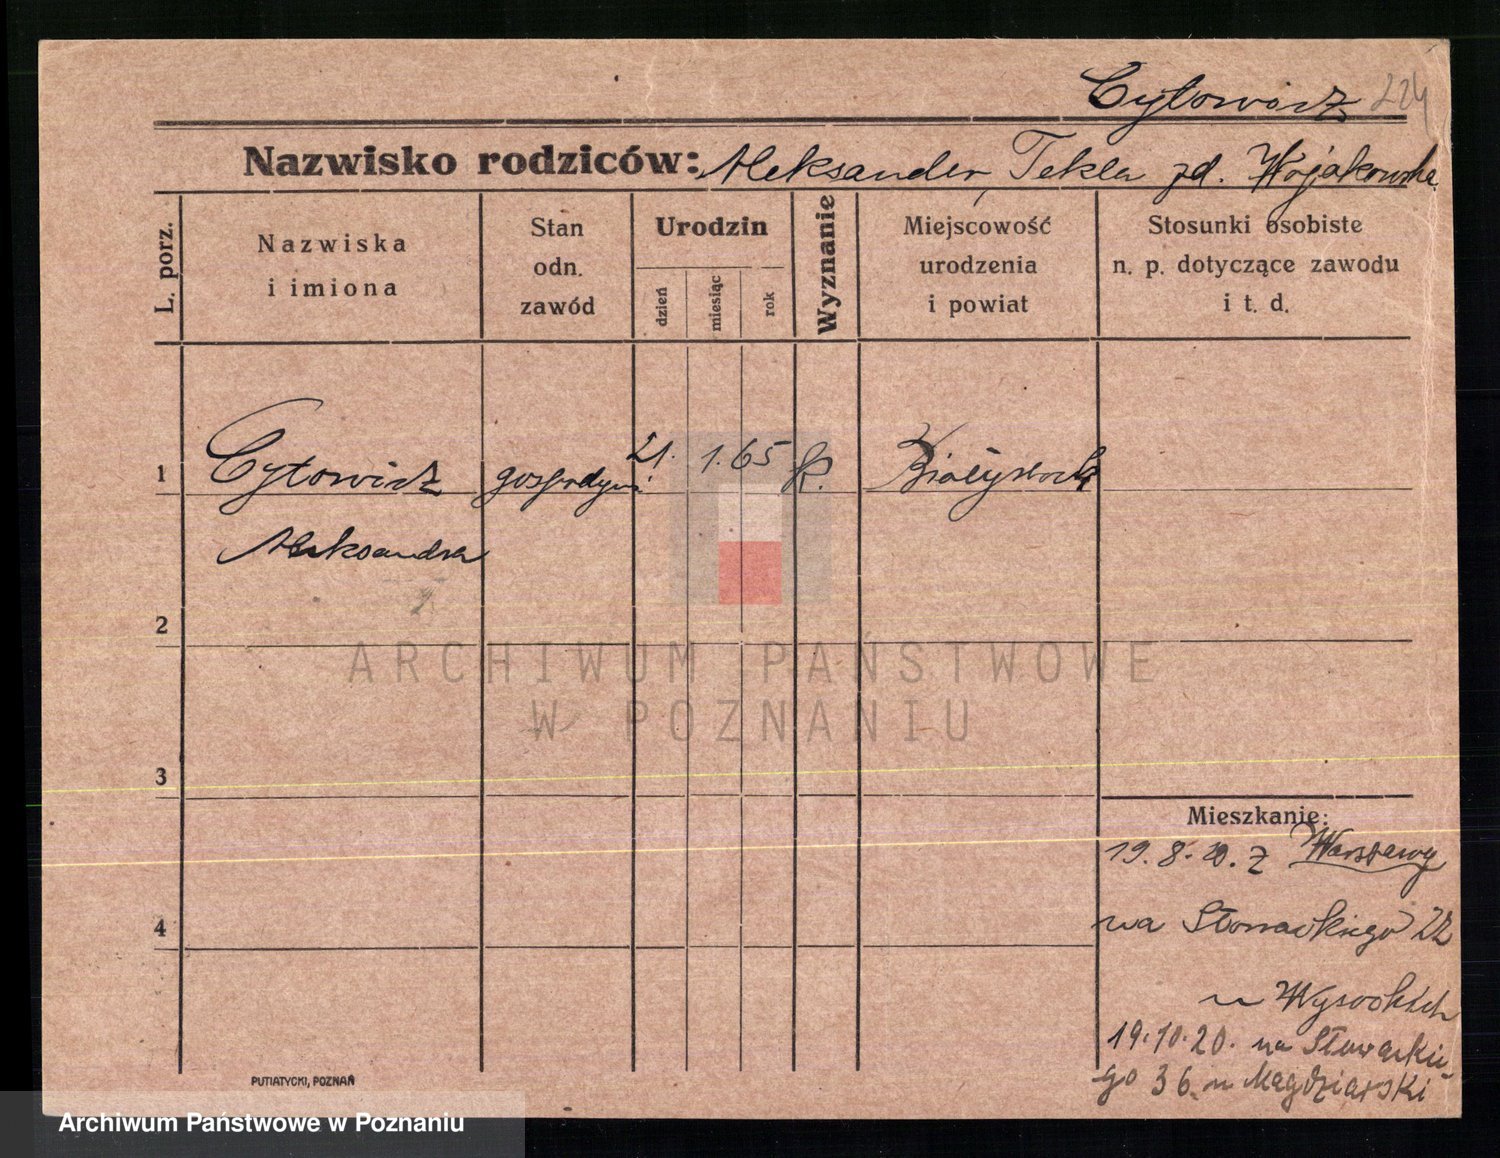 Cytowicz 224
Nazwisko rodziców: Aleksander, Tekla zd. Wojakowska
L. porz.
Nazwiska
i imiona
Stan
odn.
zawód
Urodzin
dzień
miesiąc
rok
Wyznanie
Miejscowość
urodzenia
i powiat
Stosunki osobiste
n. p. dotyczące zawodu
i t. d.
1 Cytowicz gospodyni 21. 1. 65 Białystok
Aleksandra
2
ARCHIWUM PAŃSTWOWE
W POZNANIU
3
Mieszkanie:
19. 8. 20. z Warszawy
4
na Słowackiego 22
u Wysockich
19.10.20. na Słowackie-
go 36. u Magdziarski
PUTIATYCKI, POZNAŃ
Archiwum Państwowe w Poznaniu